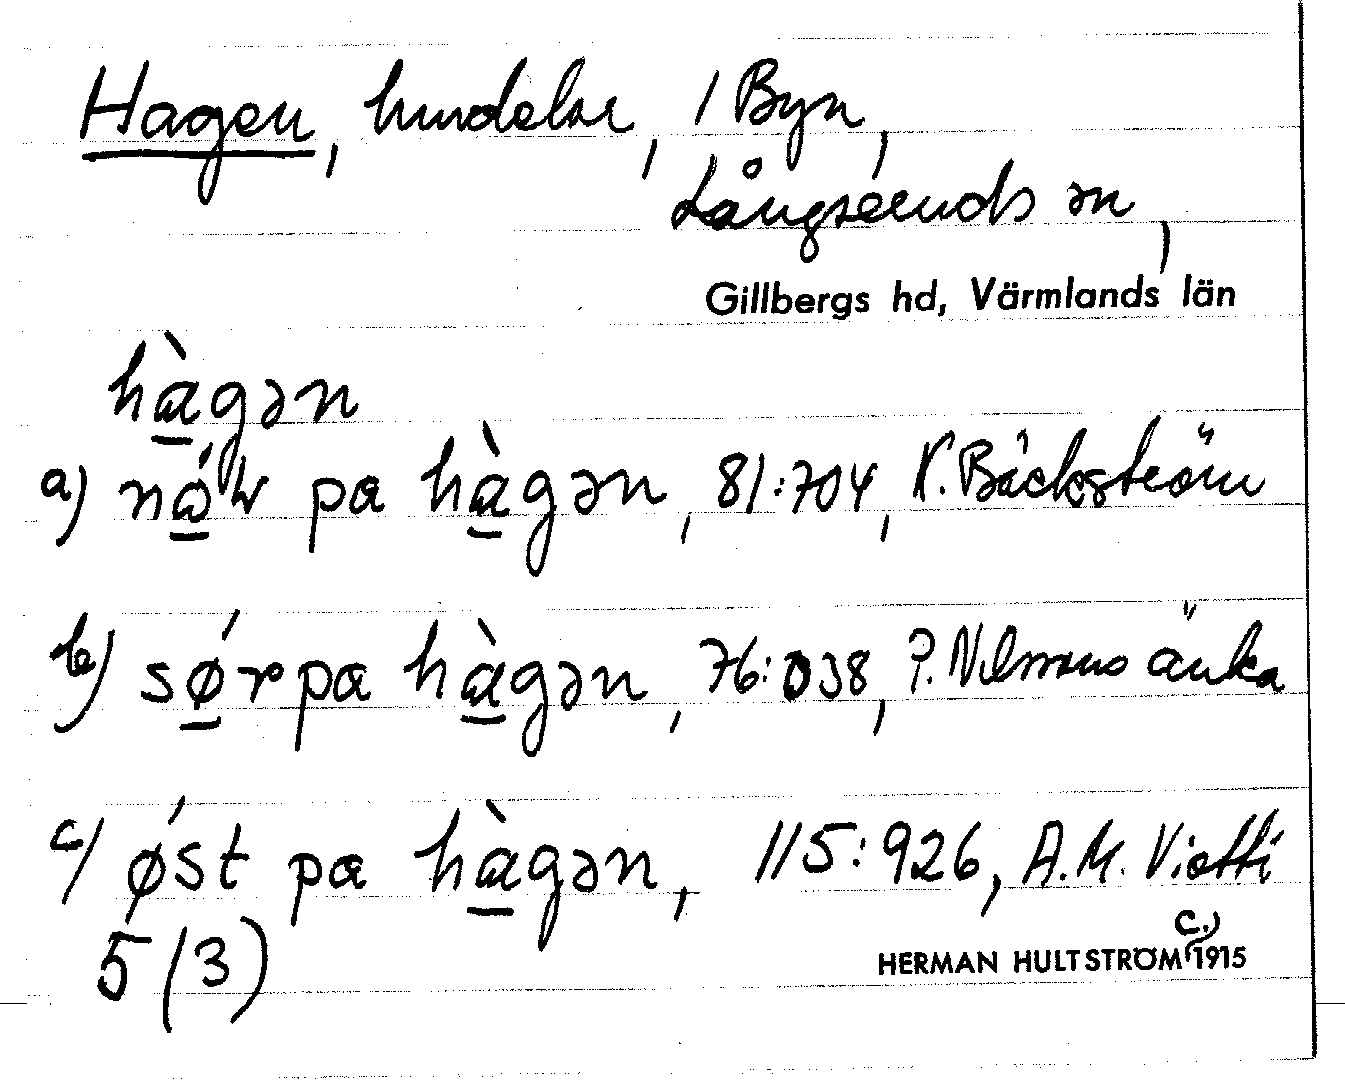 Hagen, hmdelar, / Byn,
Långseruds sn,
Gillbergs hd, Värmlands län
hàgən
a) nó̱ꝛ pa hàgən, 81:704, K. Bäckström
b) sǿ̱r pa hàgən, 76:038, P. Nilssons änka
c) ǿst pa hàgən, 115:926, A.M. Viotti
5 (3)
HERMAN HULTSTRÖM c. 1915